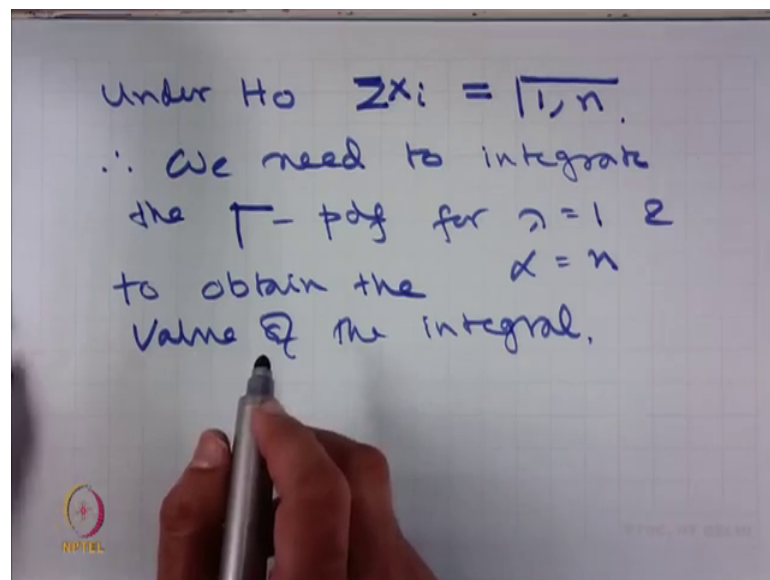 Under H0 Σxi = Γ1,n.
∴ we need to integrate
the Γ- pdf for λ=1 &
α = n
to obtain the
value of the integral.
NPTEL